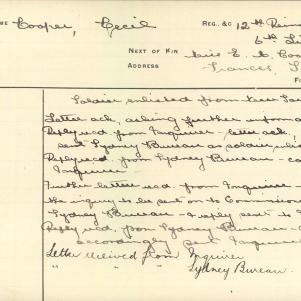 ME Cooper, Cecil REG. &C 12th Rein
6th
NEXT OF KIN Miss E. Coo
ADDRESS Frances, S
F
Soldier enlisted from New Sou
Letter ack, asking further informat
Reply recd. from Inquirer - letter ack.
sent Sydney Bureau as soldier enlis
Reply recd. from Sydney Bureau - co
Inquirer -
Further letter recd. from Inquirer
the inquiry to be sent on to Commissio
Sydney Bureau - & reply sent to
Reply recd. from Sydney Bureau -
accordingly sent Inquirer
Letter received from Inquirer
" " " Sydney Bureau.